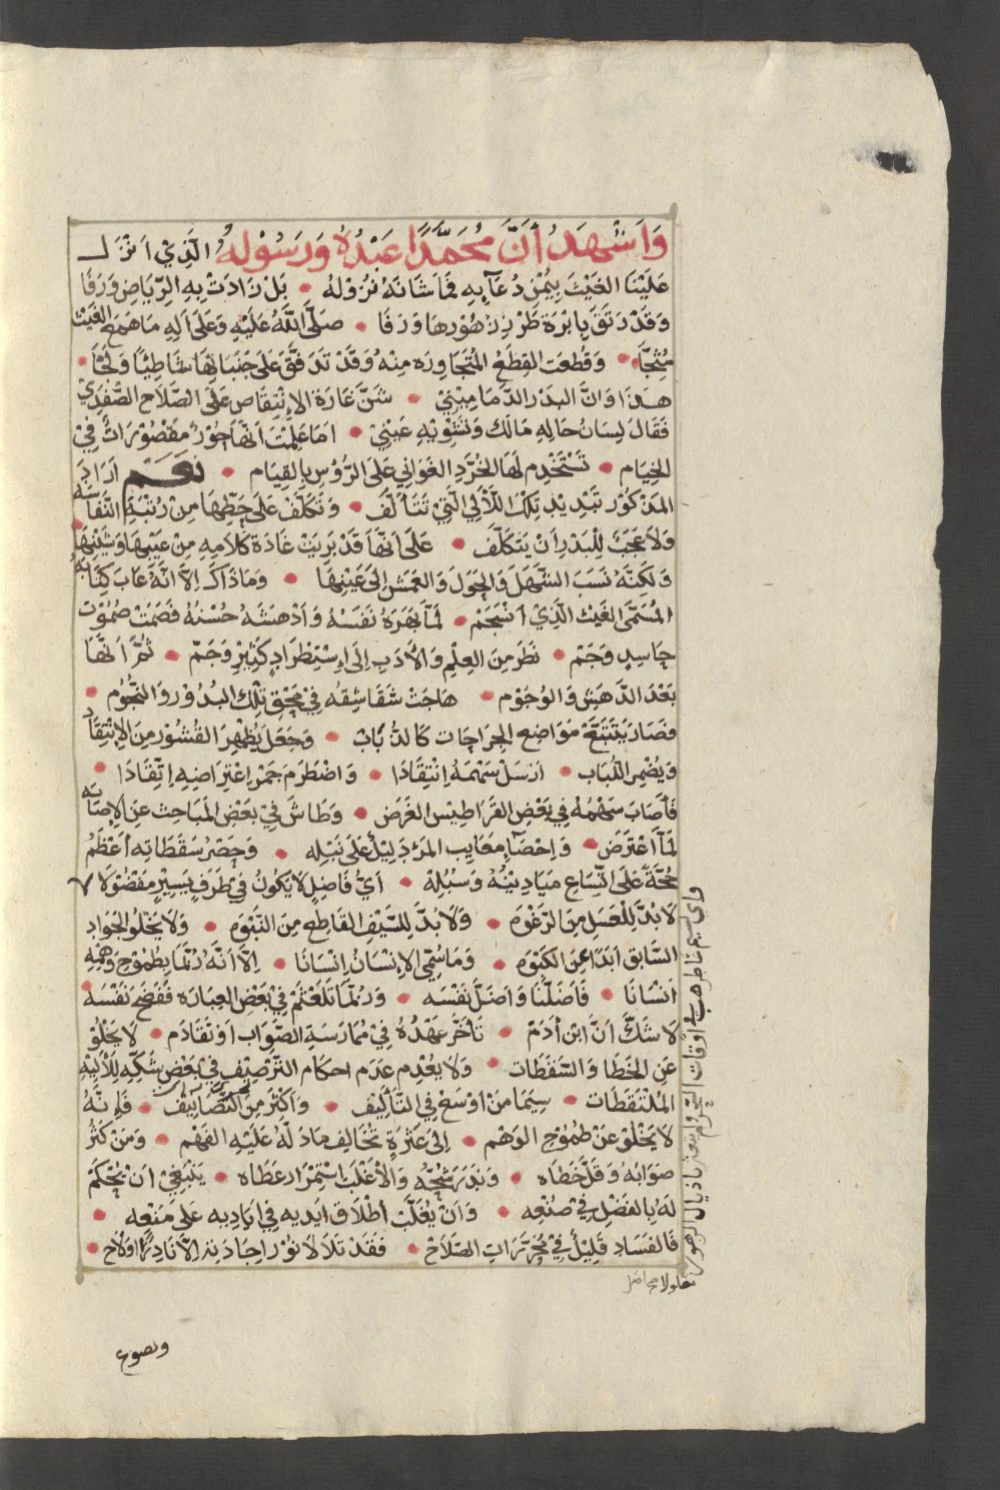 وَاَشْهَدُ أَنَّ مُحَمَّدًا عَبْدُهُ وَرَسُوْلُهُ الَّذِيْ اَنْزَلَ
عَلَيْنَا الغَيْثَ بِيُمْنِ دُعَآبِهِ فَمَا شَانَهُ نُزُوْلُهُ • بَلْ زَادَتْ بِهِ الرِّيَاضِ وَرَفَا
وَقَدْ رَتَقَ بِاِبْرَةِ طَرْزِ زُهُوْرِهَا وَرَفَا • صَلَّى اللَّهُ عَلَيْهِ وَعَلَى اَلِهِ مَا هَمَعَ الغَيْث
مُثْجِّا • وَقُطِعَت القِطَعُ المُتَجَاوِرَه مِنْهُ وَقَدْ تَدَفَّقَ عَلَى جَنَبَاتِهَا شَاطِيًا وَلُجَّا •
هَـذَا وَانَّ البَدْرَ الدَّمَامِيْنِيْ • شَنَّ غَارَةَ الاِنْتِقَاصِ عَلَى الصَّلَاحِ الصَّفَدِيْ
فَقَالَ لِسَانُ حَالِهِ مَالَكَ وَتَشْوِيْهِ عَيْنِيْ • اَمَا عَلِمْتَ اَنَّهَا حُوْرٌ مَقْصُوْرَاتٌ فِيْ
الخِيَام • تَسْتَخْدِم لَهَا الخُرَّدِ الغَوَانِي عَلَى الرُّؤُسِ بِالقِيَام • نَعَـمْ اَرَادَ
المَذْكُوْر تَبْدِيْدِ تِلْكَ اللَّاَلِي الَّتِيْ تَتَأَلَّفَ • وَتَكَلَّفَ عَلَى حَطِّهَا مِنْ رُتْبَةِ النَّفَاسَه
وَلَا عَجَبَ لِلْبَدْرِ أَنْ يَتَكَلَّف • عَلَى اَنَّهَا قَدْ بَرِيَتْ غَادَة كَلَامِهِ مِنْ عَيْبِهَا وَشَيْنِهَا
وَلَكِنَّهُ نَسَبَ الشَّهَلَ وَالحَوَلَ وَالعَمَشَ اِلَى عَيْنِهَا • وَمَا ذَاكَ اِلَّا اَنَّهُ عَابَ كِتَابَهُ
المُسَمَّى الغَيْث الَّذِيْ اَنْسَجَمْ • لَمَّا بَهَرَهُ نَفَسُهُ وَأَدْهَشَهُ حُسْنُهُ فَصَمَتَ صُمُوْت
حَاسِدٍ وَجَمْ • نَظَرَ مِنَ العِلْمِ وَالأَدَبِ اِلَى اِسْتِطْرَادٍ كَثِيْرٍ وَجَمّ • ثُمَّ اَنَّهَا
بَعْدَ الدَّهَشِ وَالوُجُوْم • هَاجَتْ شَقَاشِقُه فِيْ مَحْقِ تِلْكَ البُدُوْرِ وَالنُّجُوْم •
فَصَارَ يَتَتَبَّعُ مَوَاضِعِ الجِرَاحَاتِ كَالذُّبَابِ • وَجَعَلَ يُظْهِرَ القُشُوْرِ مِنَ الاِنْتِقَاد
وَيُضْمِرِ اللُّبَاب • اَرْسَلَ سَهْمَهُ اِنْتِقَادَا • وَاضْطَرَمَ جَمْر اِعْتِرَاضِهِ اِتِّقَادَا •
فَأَصَابَ سَهْمُهُ فِي بَعْضِ القَرَاطِيْسِ الغَرَض • وَطَاشَ فِيْ بَعْضِ المَبَاحِث عَنِ الاِصَابَه
لَمَّا اَعْتَرَض • وَاِحْصَآءُ مَعَايِبِ المَرْءِ دَلِيْلٌ عَلَى نَبَلِه • وَحَصْرُ سَقَطَاتِه أَعْظَمُ
حُجَّةٍ عَلَى اتِّسَاعِ مَيَادِيْنِهُ وَسُبُلِهْ • أَيُّ فَاضِلٍ لَا يَكُونُ فِيْ طَرَفٍ يَسِيْرٍ مَفْضُوْلَا ٧
لَا بُدَّ لِلْعَسَلِ مِنَ الرَّغْوَه • وَلَا بُدَّ لِلسَّيْفِ القَاطِعِ مِنَ النَّبْوَه • وَلَا يَخْلُو الجَوَاد
السَّابِق اَبَدًا عَنِ الكَبْوَه • وَمَا سُمِّيَ الاِنْسَانُ اِنْسَانًا • اِلَّا أَنَّهُ رُبَّمَا بِطُمُوْحِ وَهْمِهِ
اَنْسَانَا • فَأَضَلَّنَا وَأَضَلَّ نَفْسَه • وَرُبَّمَا تَلَعْثَمَ فِيْ بَعْضِ العِبَارَه فَفَضَحَ نَفْسَه
لَا شَكَّ اَنَّ ابْن أَدَمْ • تَأَخَّرَ عَهْدُهُ فِيْ مُمَارَسَةِ الصَّوَاب اَوْ تَقَادَم • لَا يَخْلُوْ
عَنِ الخَطَا وَالسَّقَطَات • وَلَا يُعْدِم عَدَم احكَام التَّرْصِيْفِ فِيْ بَعْضِ سَكِّهِ لِلَأْلِيْهِ
المُلْتَقَطَات • سِيَمَا مَنْ اَوْسَعَ فِي التَّأْلِيْف • وَاَكْثَرَ مِنَ التَّصَانِيْف • فَاِنَّهُ
لَا يَخْلُوْ عَنْ طُمُوْحِ الوَهْم • اِلَى عَثْرَةٍ تُخَالِف مَا دَلَّهُ عَلَيْهِ الفَهْم • وَمَنْ كَثُرَ
صَوَابُهُ وَقَلَّ خَطَاه • وَنَدَرَ شُحُّهُ وَالأَغْلَبُ اسْتِمْرَار عَطَاه • يَنْبَغِيْ اَنْ يُحْكَمْ
لَهُ بِالفَضْلِ فِيْ صُنْعِه • وَاَنْ يُغَلَّبَ أطْلَاق اَيْدِيه فِيْ اَيَادِيه عَلَى مَنْعِه •
فَالفَسَاد قَلِيْلٌ فِيْ مُحَرَّرَاتِ الصَّلَاحْ • فَقَدْ تَلَالَا نُوْر اِجَادَتِه اِلَّا نَادِرًا وَلَاح •
واي
وصوع